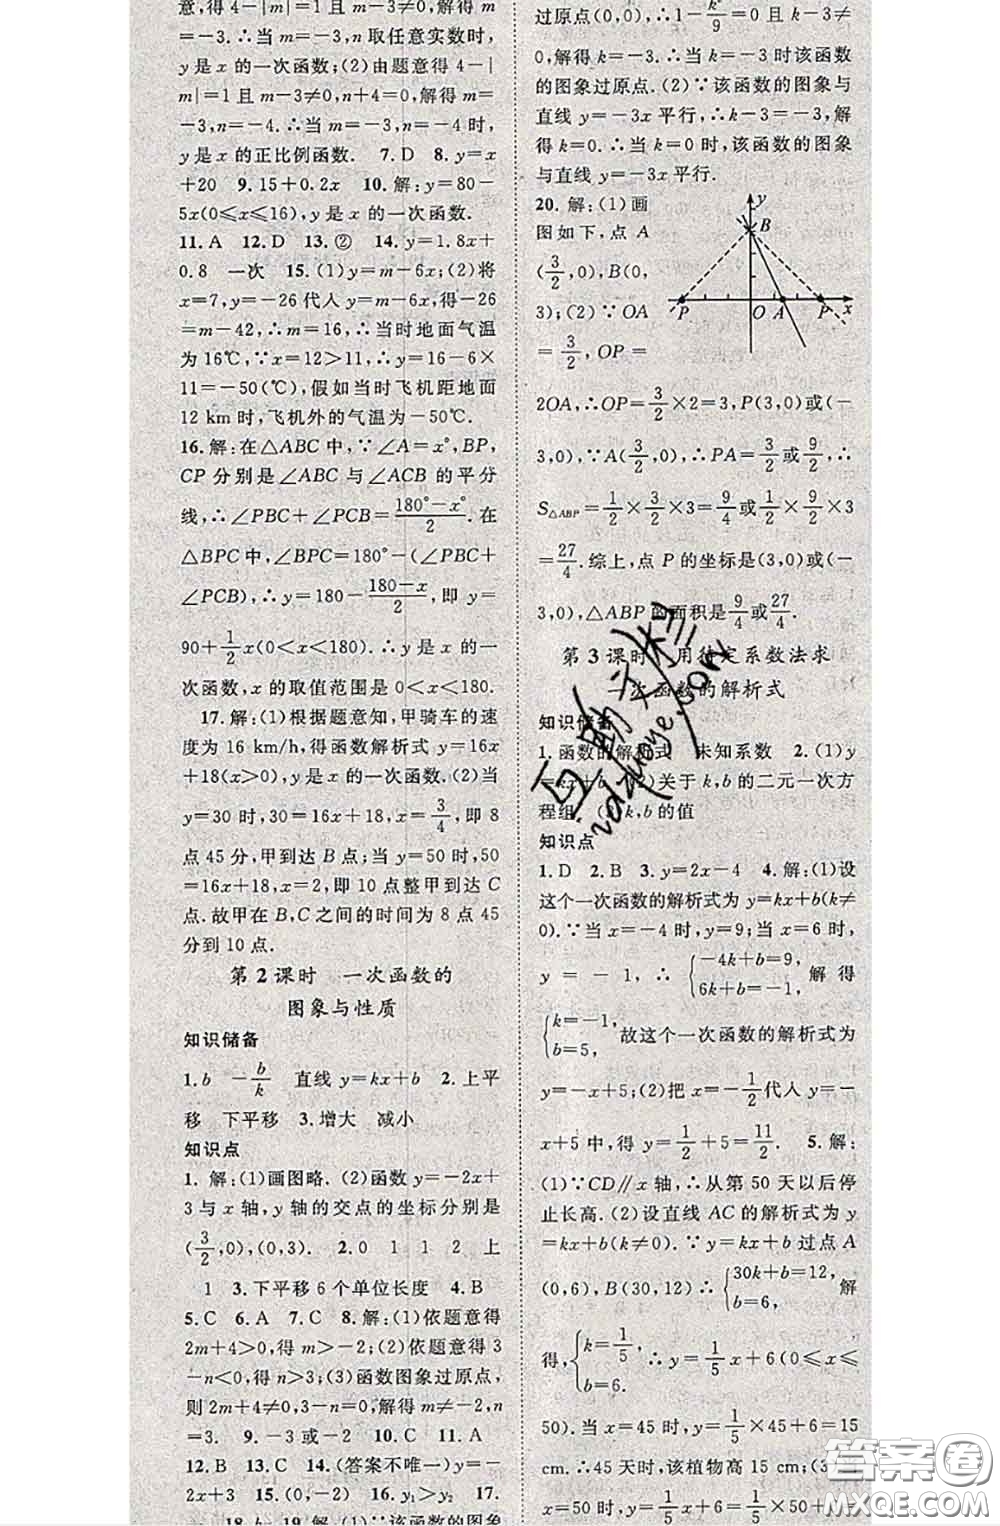 意,得4-|m|=1且m-3≠0,解得m
=-3.∴当m=-3,n取任意实数时,
y是x的一次函数;(2)由题意得4-|
m|=1且m-3≠0,n+4=0,解得m=
-3,n=-4.∴当m=-3,n=-4时,
y是x的正比例函数. 7.D 8.y=x
+20 9.15+0.2x 10.解:y=80-
5x(0≤x≤16),y是x的一次函数.
11.A 12.D 13.② 14.y=1.8x+
0.8 一次 15.(1)y=m-6x;(2)将
x=7,y=-26代入y=m-6x得-26
=m-42,∴m=16,∴当时地面气温
为16℃,∵x=12>11,∴y=16-6×
11=-50(℃),假如当时飞机距地面
12 km时,飞机外的气温为-50℃.
16.解:在△ABC中,∵∠A=x°,BP,
CP分别是∠ABC与∠ACB的平分
线,∴∠PBC+∠PCB=(180°-x°)/2.在
△BPC中,∠BPC=180°-(∠PBC+
∠PCB),∴y=180-(180-x)/2,即y=
90+1/2x(0<x<180).∴y是x的一
次函数,x的取值范围是0<x<180.
17.解:(1)根据题意知,甲骑车的速
度为16 km/h,得函数解析式y=16x
+18(x>0),是一次函数.(2)当
y=30时,30=16x+18,x=3/4,即8
点45分,甲到达B点;当y=50时,50
=16x+18,x=2,即10点整甲到达C
点.故甲在B,C之间的时间为8点45
分到10点.
第2课时 一次函数的
图象与性质
知识储备
1.b -b/k 直线y=kx+b 2.上平
移 下平移 3.增大 减小
知识点
1.解:(1)画图略.(2)函数y=-2x+
3与x轴,y轴的交点的坐标分别是
(3/2,0),(0,3). 2.0 1 1 2 上
1 3.下平移6个单位长度 4.B
5.C 6.A 7.C 8.解:(1)依题意得
2m+4>0,得m>-2;(2)依题意得3
-n<0,得n>3;(3)函数图象过原点,
则2m+4≠0,3-n=0,解得m≠-2,n
=3. 9.-3或-2 10.C 11.A
12.B 13.C 14.(答案不唯一)y=
-2x+3 15.(0,-2) 16.y₁>y₂ 17.
18.B 19.解:(1)∵该函数的图象
过原点(0,0),∴1-k²/9=0且k-3≠
0,解得k=-3.∴当k=-3时该函数
的图象过原点.(2)∵该函数的图象与
直线y=-3x平行,∴k-3=-3,解
得k=0.∴当k=0时,该函数的图象
与直线y=-3x平行.
20.解:(1)画
图如下,点A
(3/2,0),B(0,
3);(2)∵OA
=3/2,OP=
y
B
P O A P x
2OA,∴OP=3/2×2=3,P(3,0)或(-
3,0),∵A(3/2,0),∴PA=3/2或9/2,∴
S△ABP=1/2×3/2×3=9/4或1/2×9/2×3
=27/4.综上,点P的坐标是(3,0)或(-
3,0),△ABP的面积是9/4或27/4.
第3课时 用待定系数法求
一次函数的解析式
知识储备
1.函数的解析式 未知系数 2.(1)y
=kx+b (2)关于k,b的二元一次方
程组 (3)k,b的值
知识点
1.D 2.B 3.y=2x-4 4.解:(1)设
这个一次函数的解析式为y=kx+b(k≠
0).∵当x=-4时,y=9;当x=6时,
y=-1,∴{-4k+b=9, 6k+b=-1, 解得
{k=-1, b=5, 故这个一次函数的解析式为
y=-x+5;(2)把x=-1/2代入y=-
x+5中,得y=1/2+5=11/2. 5.解:
(1)∵CD∥x轴,∴从第50天以后停
止长高.(2)设直线AC的解析式为y
=kx+b(k≠0).∵y=kx+b过点A
(0,6),B(30,12)∴{30k+b=12, b=6, 解
得,{k=1/5, b=6. ∴y=1/5x+6(0≤x≤
50).当x=45时,y=1/5×45+6=15
cm.∴45天时,该植物高15 cm;(3)
x=50时,y=1/5x+6=1/5×50+
百助文档
答案圈
MXQE.COM